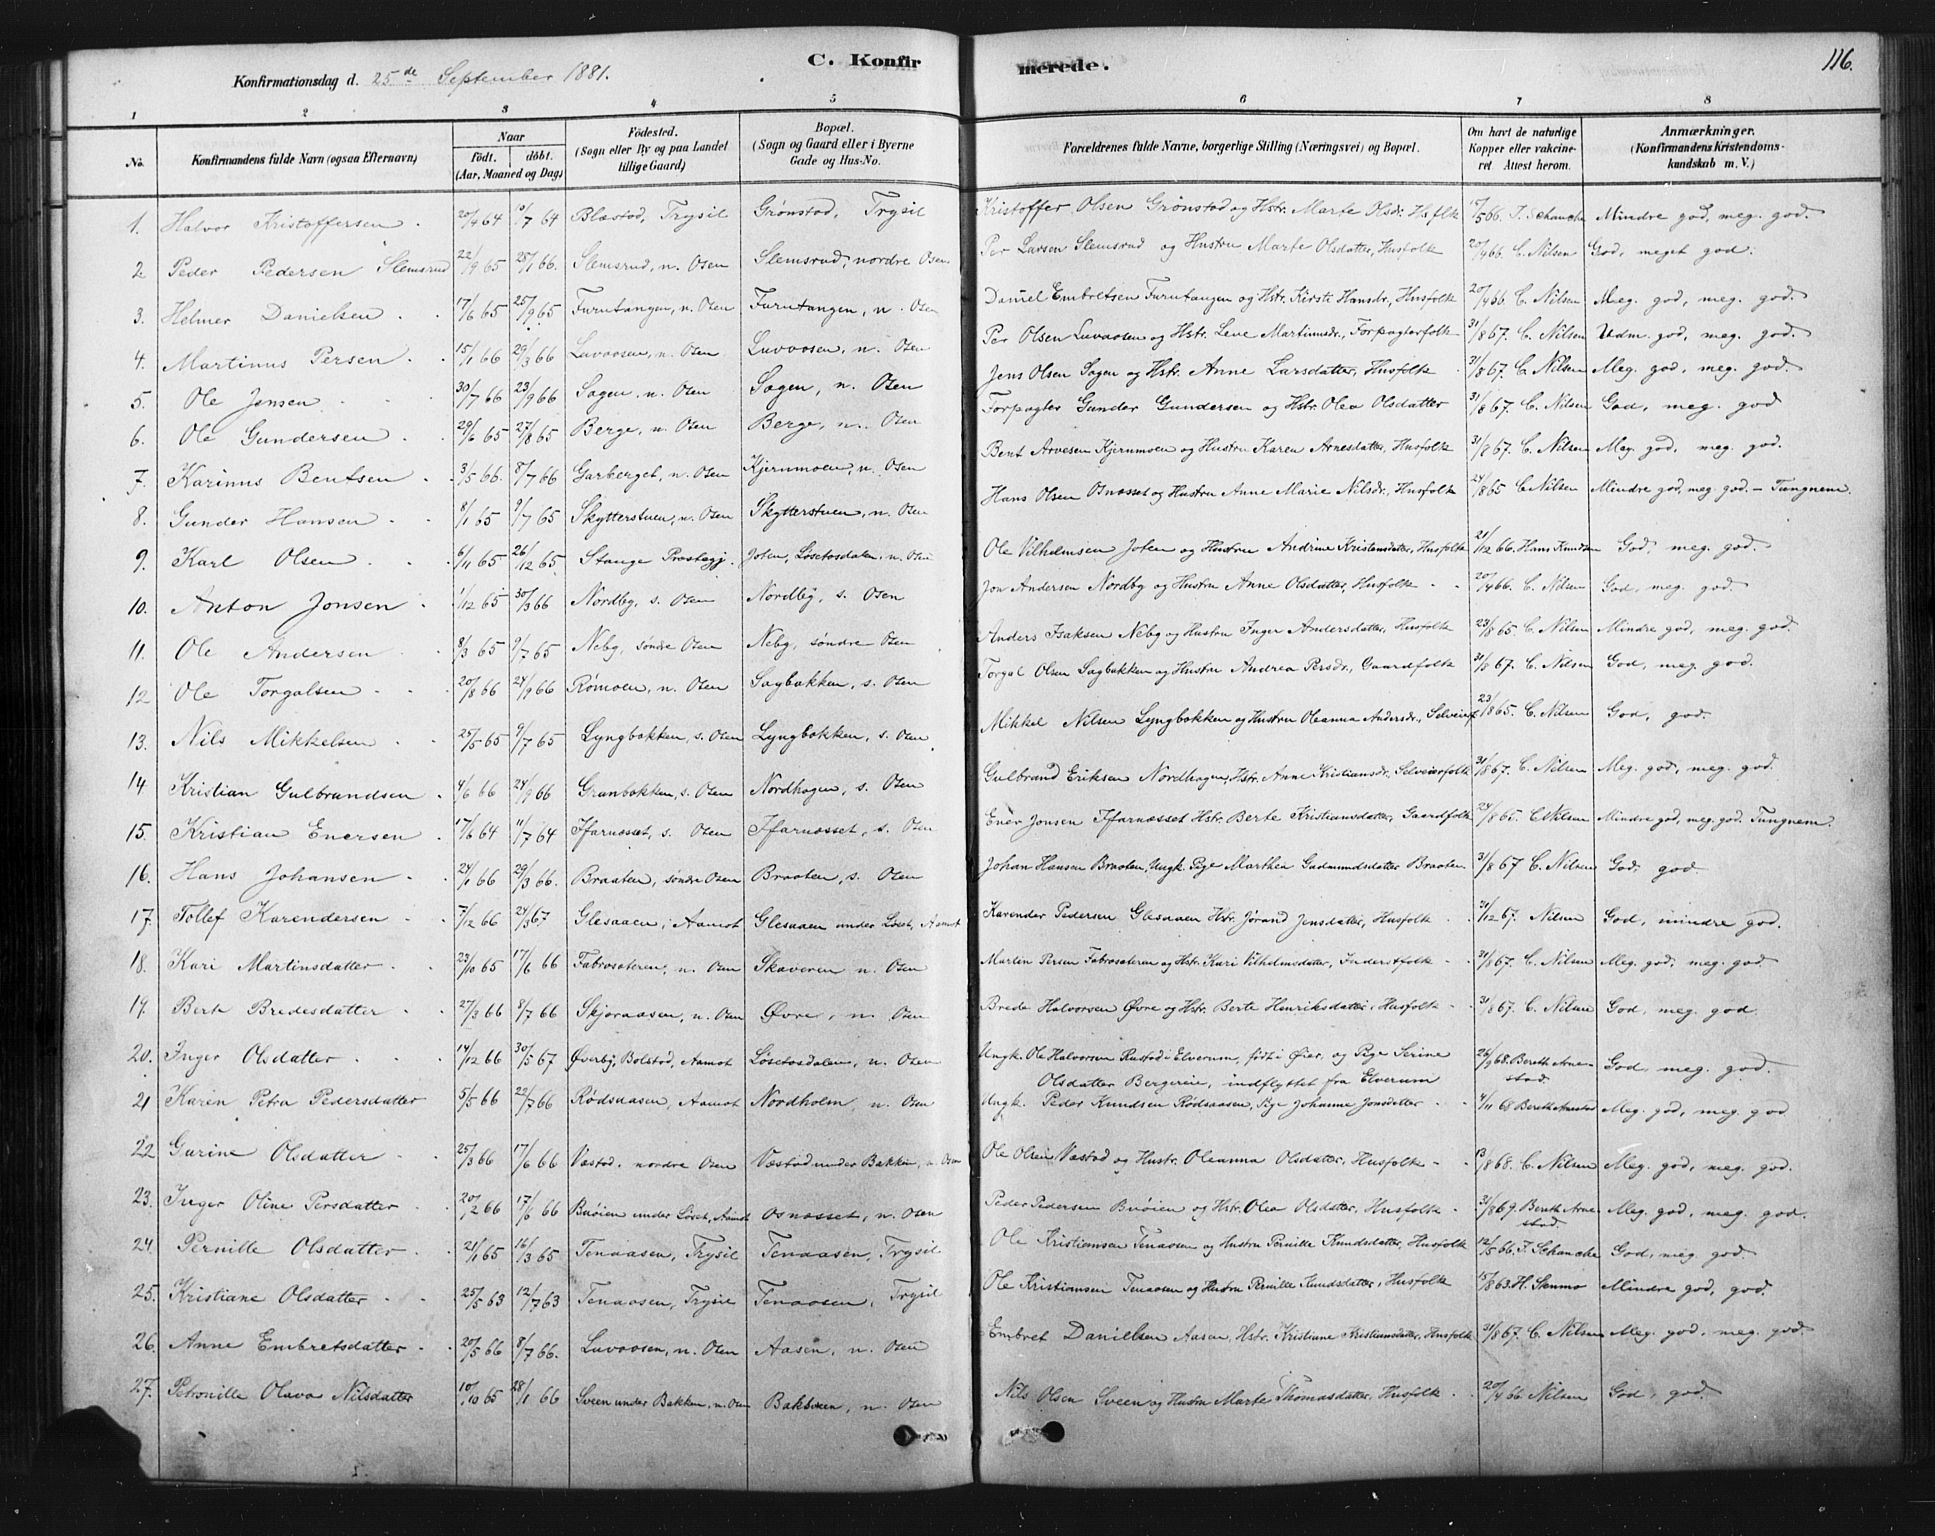 116.
C. Konfirmerede.
Konfirmationsdag d. 25de September 1881.
1 2 3 4 5 6 7 8
No. | Konfirmandens fulde Navn (ogsaa Efternavn) | Naar födt. döbt. (Aar, Maaned og Dag) | Födested. (Sogn eller By og paa Landet tillige Gaard) | Bopæl. (Sogn og Gaard eller i Byerne Gade og Hus-No. | Forældrenes fulde Navne, borgerlige Stilling (Næringsvei) og Bopæl. | Om havt de naturlige Kopper eller vakcineret Attest herom. | Anmærkninger. (Konfirmandens Kristendomskundskab m. V.)
1. Halvor Kristoffersen 20/4 64 10/7 64 Blæstad, Trysil Grønstad, Trysil Kristoffer Olsen Grønstad og Hstr. Marte Olsdr. Hsflk 17/5 66. J. Schanche Mindre god, meg. god.
2 Peder Pedersen Slemsrud 22/9 65 25/1 66. Slemsrud, n. Osen Slemsrud, nordre Osen Per Larsen Slemsrud og Hustru Marte Olsdatter, Husfolk 20/4 66. C. Nilsen God, meget god.
3. Helmer Danielsen 17/6 65 25/9 65 Furutangen, n. Osen Furutangen, n. Osen Daniel Embretsen Furutangen og Hstr. Kirsti Hansdr., Husfolk 20/4 66. C. Nilsen Meg. god, meg. god.
4. Martinus Persen 15/1 66 29/3 66 Luvaasen, n. Osen Luvaasen, n. Osen Per Olsen Luvaasen og Hstr. Lene Martinusdr., Forpagterfolk 31/8 67. C. Nilsen Udm. god, meg. god.
5. Ole Jensen 30/7 66 23/9 66 Sagen, n. Osen Sagen, n. Osen Jens Olsen Sagen og Hstr. Anne Larsdatter, Husfolk 31/8 67. C. Nilsen Meg. god, meg. god.
6. Ole Gundersen 29/6 65 27/8 65 Berge, n. Osen Berge, n. Osen Forpagter Gunder Gundersen og Hstr. Olea Olsdatter 31/8 67. C. Nilsen God, meg. god
7. Karinus Bentsen 3/5 66. 8/7 66 Garberget, n. Osen Kjernmoen, n. Osen Bent Arnesen Kjernmoen og Hustru Karen Arnesdatter, Husfolk 31/8 67. C. Nilsen Meg. god, meg. god.
8. Gunder Hansen 8/1 65 9/7 65 Skytterstuen, n. Osen Skytterstuen, n. Osen Hans Olsen Osnæsset og Hustru Anne Marie Nilsdr., Husfolk 24/8 65 C. Nilsen Mindre god, meg. god. – Tungnem.
9. Karl Olsen 6/11 65 26/12 65. Stange Præstegj. Joten, Løsetosdalen, n. Osen Ole Vilhelmsen Joten og Hustru Andrine Kristensdatter, Husfolk 21/12 66. Hans Knudsen God, meg. god.
10. Anton Jonsen 1/12 65 30/3 66 Nordby, s. Osen Nordby, s. Osen Jon Andersen Nordby og Hustru Anne Olsdatter, Husfolk 20/4 66. C. Nilsen God, meg. god.
11. Ole Andersen 8/3 65 9/7 65 Neby, søndre Osen Neby, søndre Osen Anders Isaksen Neby og Hustru Inger Andersdatter, Husfolk 23/8 65. C. Nilsen Mindre god, meg. god.
12 Ole Torgalsen 20/8 66 24/9 66 Rømoen, n. Osen Sagbakken, s. Osen Torgal Olsen Sagbakken og Hustru Andrea Persdr., Gaardfolk 31/8 67. C. Nilsen God, meg. god.
13. Nils Mikkelsen 25/5 65 9/7 65 Lyngbakken, s. Osen Lyngbakken, s. Osen Mikkel Nilsen Lyngbakken og Hustru Oleanna Andersdr., Selveierf. 23/8 65. C. Nilsen God, god.
14 Kristian Gulbrandsen 4/6 66 24/9 66 Granbakken, s. Osen Nordhagen, s. Osen Gulbrand Eriksen Nordhagen, Hstr. Anne Kristiansdr., Selveierfolk 31/8 67. C. Nilsen Meg. god, meg. god.
15. Kristian Enersen 17/6 64 11/7 64 Ifarnæsset, s. Osen Ifarnæsset, s. Osen Ener Jonsen Ifarnæsset Hstr. Berte Kristiansdatter, Gaardfolk 24/8 65. C. Nilsen Mindre god, meg. god. Tungnem.
16. Hans Johansen 24/1 66 29/3 66. Braaten, søndre Osen Braaten, s. Osen Johan Hansen Braaten, Ungk. Pige Marthea Gudmundsdatter Braaten 31/8 67 C. Nilsen God, god
17. Tollef Karendersen 7/12 66 24/3 67 Glesaaen, i Aamot Glesaaen under Løset, Aamot Karender Pedersen Glesaaen Hstr. Jørand Jensdatter, Husfolk 31/12 67. Nilsen God, mindre god.
18. Kari Martinsdatter 23/10 65 17/6 66 Fabrosæteren, n. Osen Skaveren n. Osen Martin Persen Fabrosæteren og Hstr. Kari Vilhelmsdatter, Inderstfolk 31/8 67. C. Nilsen Meg. god, meg. god
19. Berte Bredesdatter 27/3 66 8/7 66 Skjøraasen, n. Osen Øvre, n. Osen Brede Halvorsen Øvre og Hstr. Berte Henriksdatter, Husfolk 31/8 67. C. Nilsen God, meg. god
20. Inger Olsdatter 14/12 66 30/5 67 Øverby, Bolstad, Aamot Løsetosdalen, n. Osen Ungk. Ole Halvorsen Rustad i Elverum, født i Øier, og Pige Serine Olsdatter Bergereie, indflyttet fra Elverum 26/9 68. Bereth Arnestad. God, meg. god.
21 Karen Petra Pedersdatter 5/5 66 22/7 66 Rødsaasen, Aamot Nordholm, n. Osen Ungk. Peder Knudsen Rødsaasen, Pige Johanne Jonsdatter 4/11 68 Bereth Arnestad Meg. god, meg. god
22 Gurine Olsdatter 25/3 66 17/6 66 Væstad, nordre Osen Væstad under Bakken, n. Osen Ole Olsen Væstad og Hustr. Oleanna Olsdatter, Husfolk 13/8 68. C. Nilsen Meg. god, meg. god.
23. Inger Oline Persdatter 20/2 66 17/6 66 Buøien under Løset, Aamot Osnæsset, n. Osen Peder Pedersen Buøien og Hstr. Olea Olsdatter, Husfolk 31/8 69. Bereth Arnestad. Meg. god, meg. god.
24. Pernille Olsdatter 21/1 65 16/3 65 Tenaasen, Trysil Tenaasen, Trysil Ole Kristiansen Tenaasen og Hustru Pernille Knudsdatter, Husfolk 12/5 66. J. Schanche God, meg. god
25. Kristiane Olsdatter 25/5 63 12/7 63 Tenaasen, Trysil Tenaasen, Trysil Ole Kristiansen Tenaasen og Hustru Pernille Knudsdatter, Husfolk 15/8 63. H. Stenmo Mindre god, god.
26. Anne Embretsdatter 20/5 66 8/7 66. Luvaasen, n. Osen Aasen, n. Osen Embret Danielsen Aasen, Hstr. Kristiane Kristiansdatter, Husfolk 31/8 67. C. Nilsen Meg. god, meg. god
27. Petronille Olava Nilsdatter 10/10 65 28/1 66 Sveen under Bakken, n. Osen Bakken, n. Osen Nils Olsen Sveen og Hustru Marte Thomasdatter, Husfolk 20/4 66 Nilsen God, god.